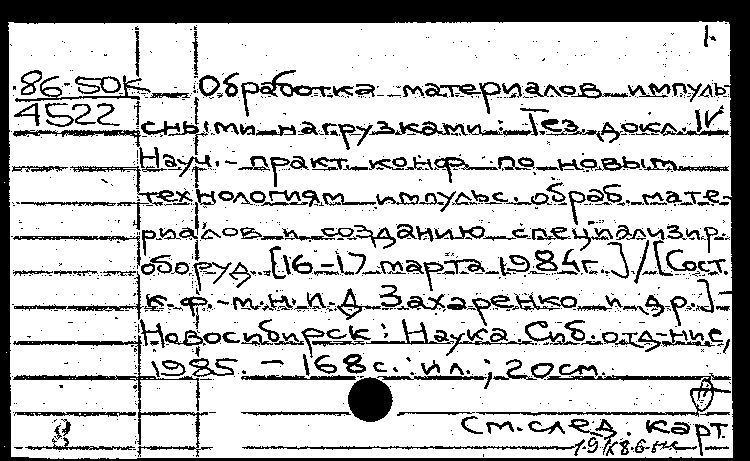 1.
86-50К
4522
Обработка материалов импуль-
сными нагрузками: Тез. докл. IV
Науч.-практ. конф. по новым
технологиям импульс. обраб. мате-
риалов и созданию специализир.
оборуд. [16-17 марта 1984г.] / [Сост.
к.ф.-м.н. И.Д Захаренко и др.] -
Новосибирск: Наука. Сиб. отд-ние,
1985. - 168с.: ил.; 20см.
См. след. карт
8